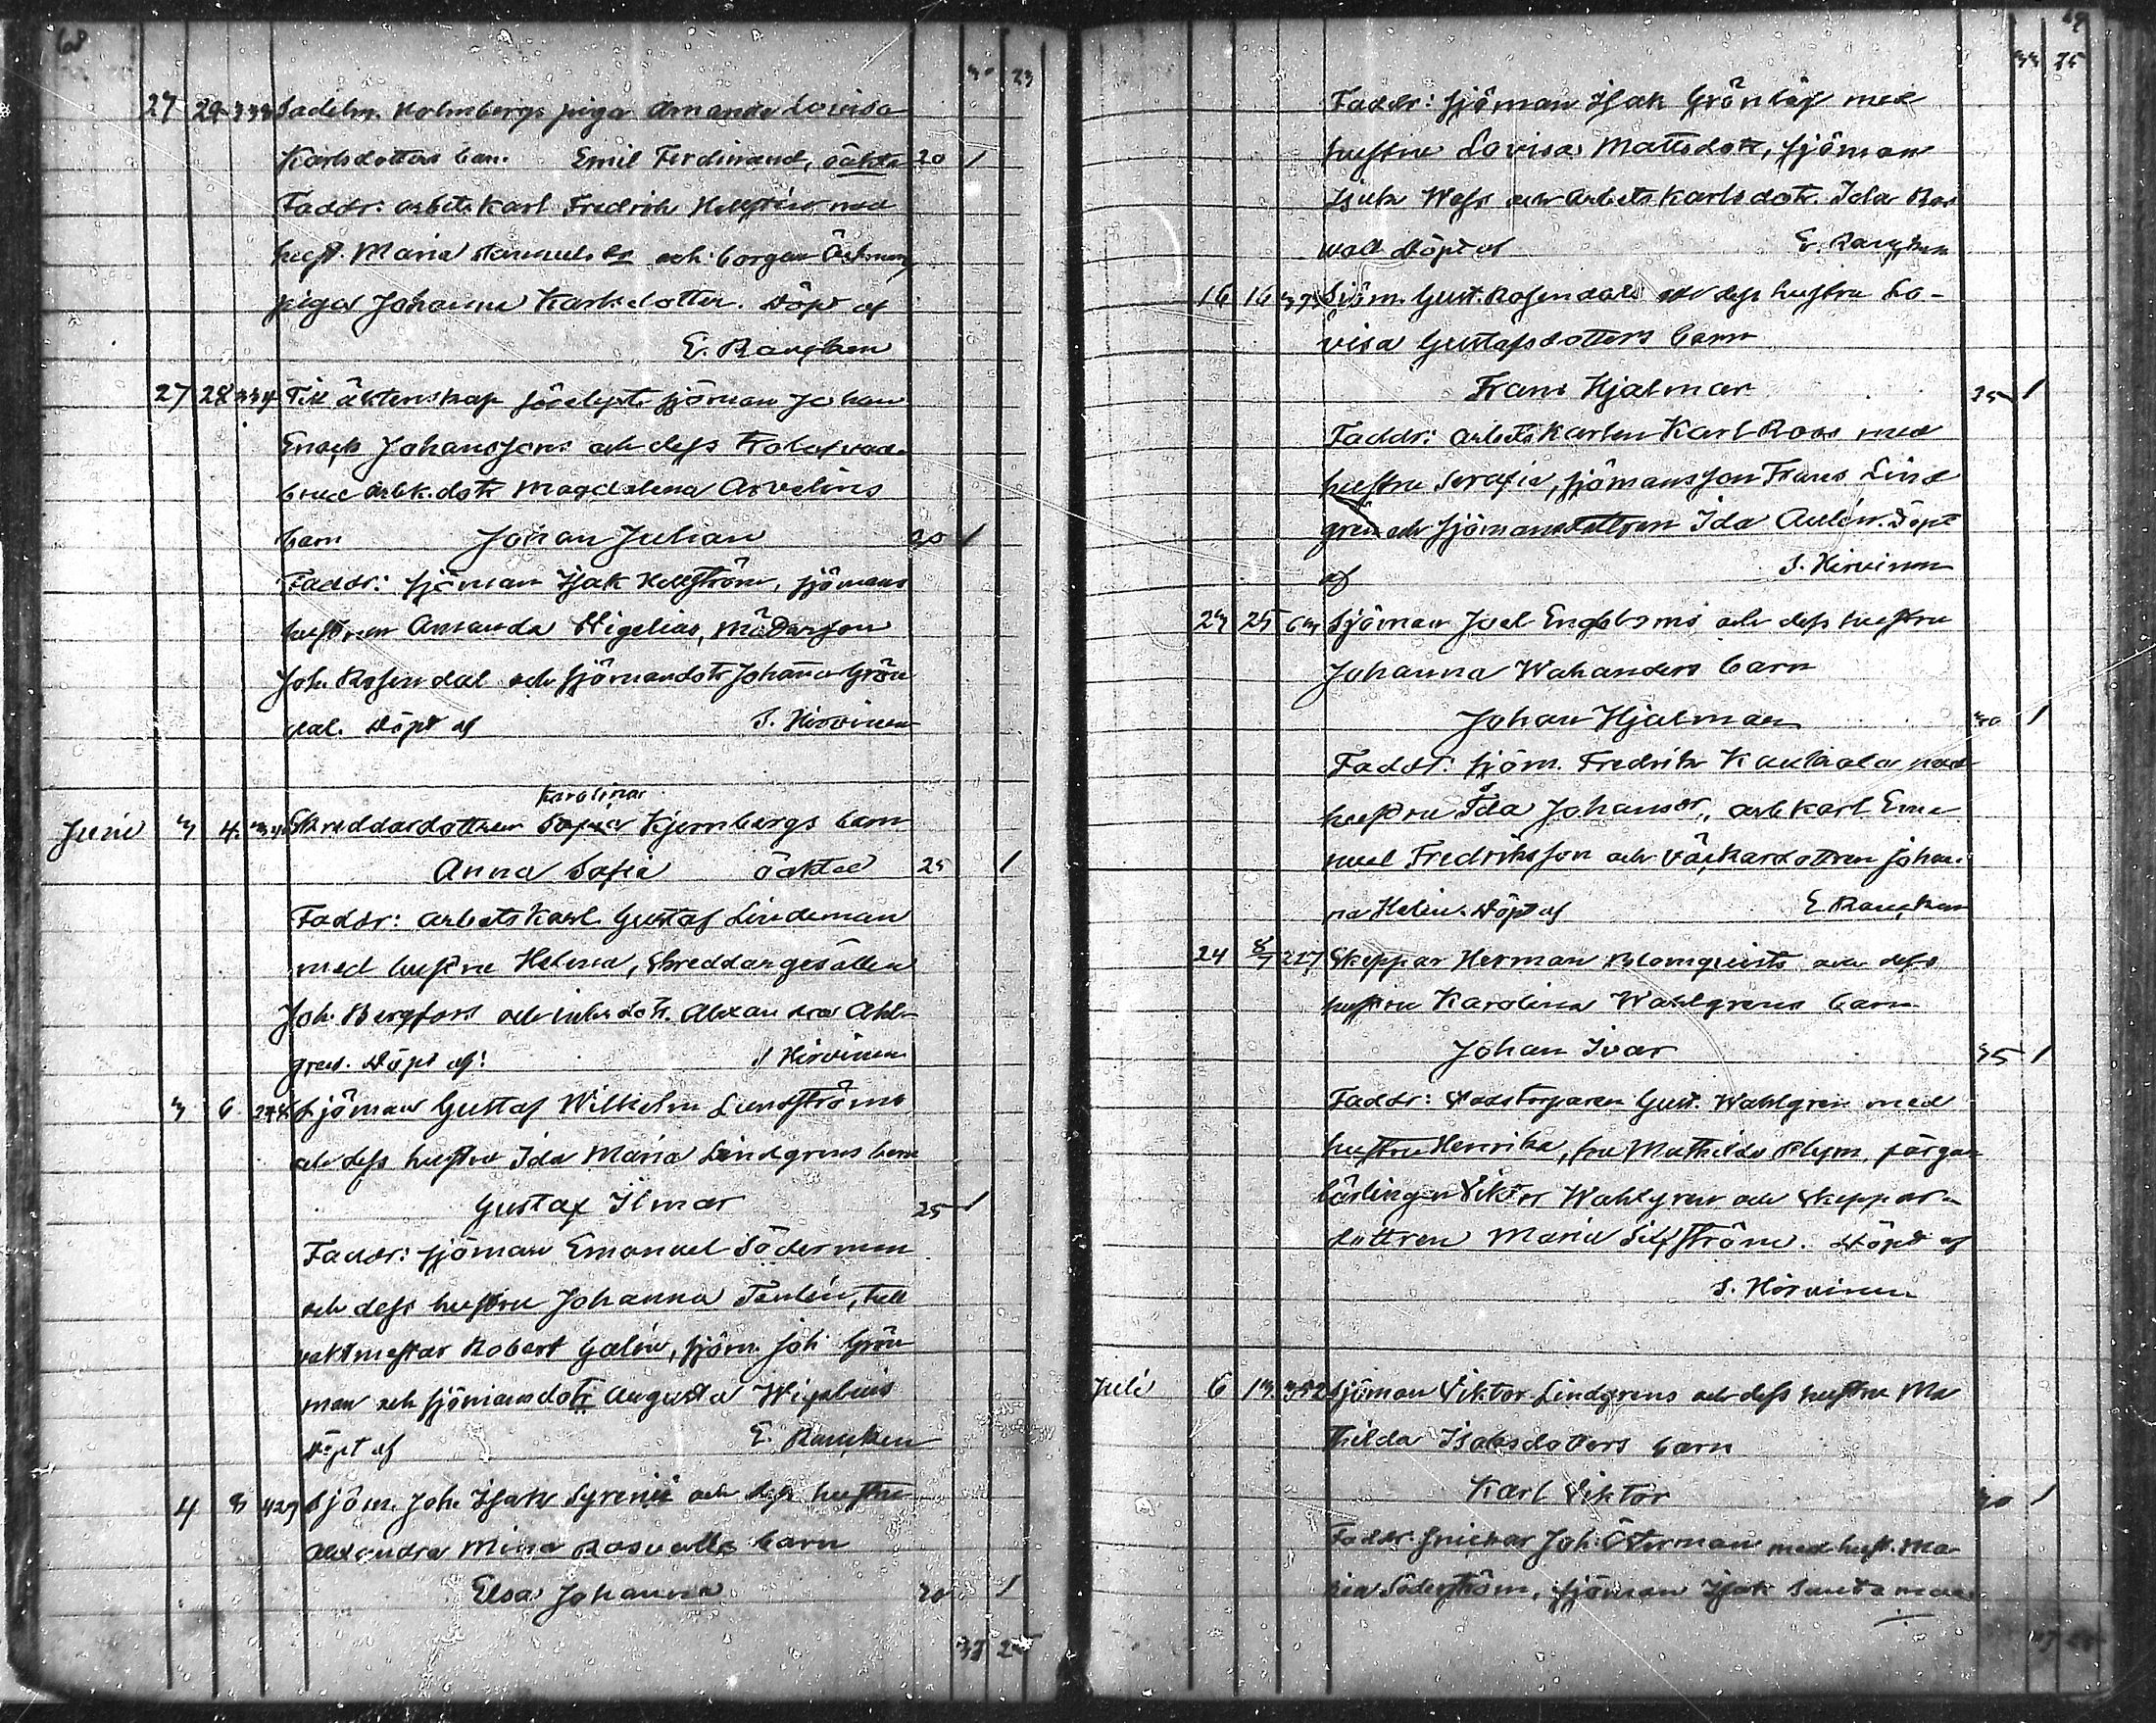 68
30 23
27 29 333 Sadelm. Holmbergs piga Amanda Lovisa
Karlsdotters barn Emil Ferdinand, oäkta 20 1
Faddr: arbetskarl Fredrik Hellsten med
hust. Maria Samuels dr och borgar Östmans
piga Johanna Karlsdotter. Döpt af
E. Rancken
27 28 334 Till äktenskap förelyste sjöman Johan
Enoch Johanssons och dess trolofvade
brud arbk.dotr Magdalena Arvelins
barn Johan Julian 30 1
Faddr: sjöman Isak Hellström, sjömans
hustrun Amanda Wigelius, måg
Joh. Rosendal och sjömansdotr Johanna Grön
dal. Döpt af S. Hirvinen
Karolina
Junii 3 4 Skreddardottren Sofia Kjernbergs barn
Anna Sofia oäkta 25 1
Faddr: arbetskarl Gustaf Lindeman
med hustru Helena, skreddargesällen
Joh. Bergfors och dotr. Alexandra Ahl-
gren. Döpt af: S Hirvinen
3 6 Sjöman Gustaf Wilhelm Lundströms
och dess hustru Ida Maria Lindgrens barn
Gustaf Ilmar 25 1
Faddr: sjöman Emanuel Söderman
och dess hustru Johanna Tenlén, tull
vaktmestar Robert Galén, sjöm. Joh Grön
man och sjömansdotr Augusta Wigelius
Döpt af E. Rancken
4 8 429 Sjöm. Joh. Isak Syrenii och dess hustru
Alexandra Mina Rosvalls barn
Elsa Johanna 20 1
33 25
69
33 25
Faddr: sjöman Isak Grönlöf med
hustru Lovisa Mattsdotr, sjöman
Isak Wass och arbetskarlsdotr. Ida Ros
vall Döpt af E. Rancken
16 16 Sjöm. Gust. Rosendals och dess hustru Lo-
visa Gustafsdotters barn
Frans Hjalmar 25 1
Faddr: arbetskarlen Karl Roos med
hustru Serafia, sjömansson Frans Lind
gren och sjömansdottren Ida Aulén. Döpt
af S. Hirvinen
23 25 63 Sjöman Joel Engbloms och dess hustru
Johanna Wahanders barn
Johan Hjalmar 30 1
Faddr: sjöm. Fredrik Kauhala med
hustru Ida Johansdr, arbkarl Ema
nuel Fredriksson och dottren Johan-
na Helin. Döpt af E. Rancken
24 8/7 217 Skeppar Herman Blomqvists och dess
hustru Karolina Wahlgrens barn
Johan Ivar 35 1
Faddr: Stadstorparen Gust. Wahlgren med
hustru Henrika, fru Mathilda Plym, färgar
lärlingen Viktor Wahlgren och skeppar-
dottren Maria Silfström. Döpt af
S. Hirvinen
Julii 6 13 352 Sjöman Viktor Lindgrens och dess hustru Ma
thilda Isaksdotters barn
Karl Viktor 30 1
Faddr: snickar Joh. Österman med hust. Ma
ria Söderström, sjöman Isak Santamaa